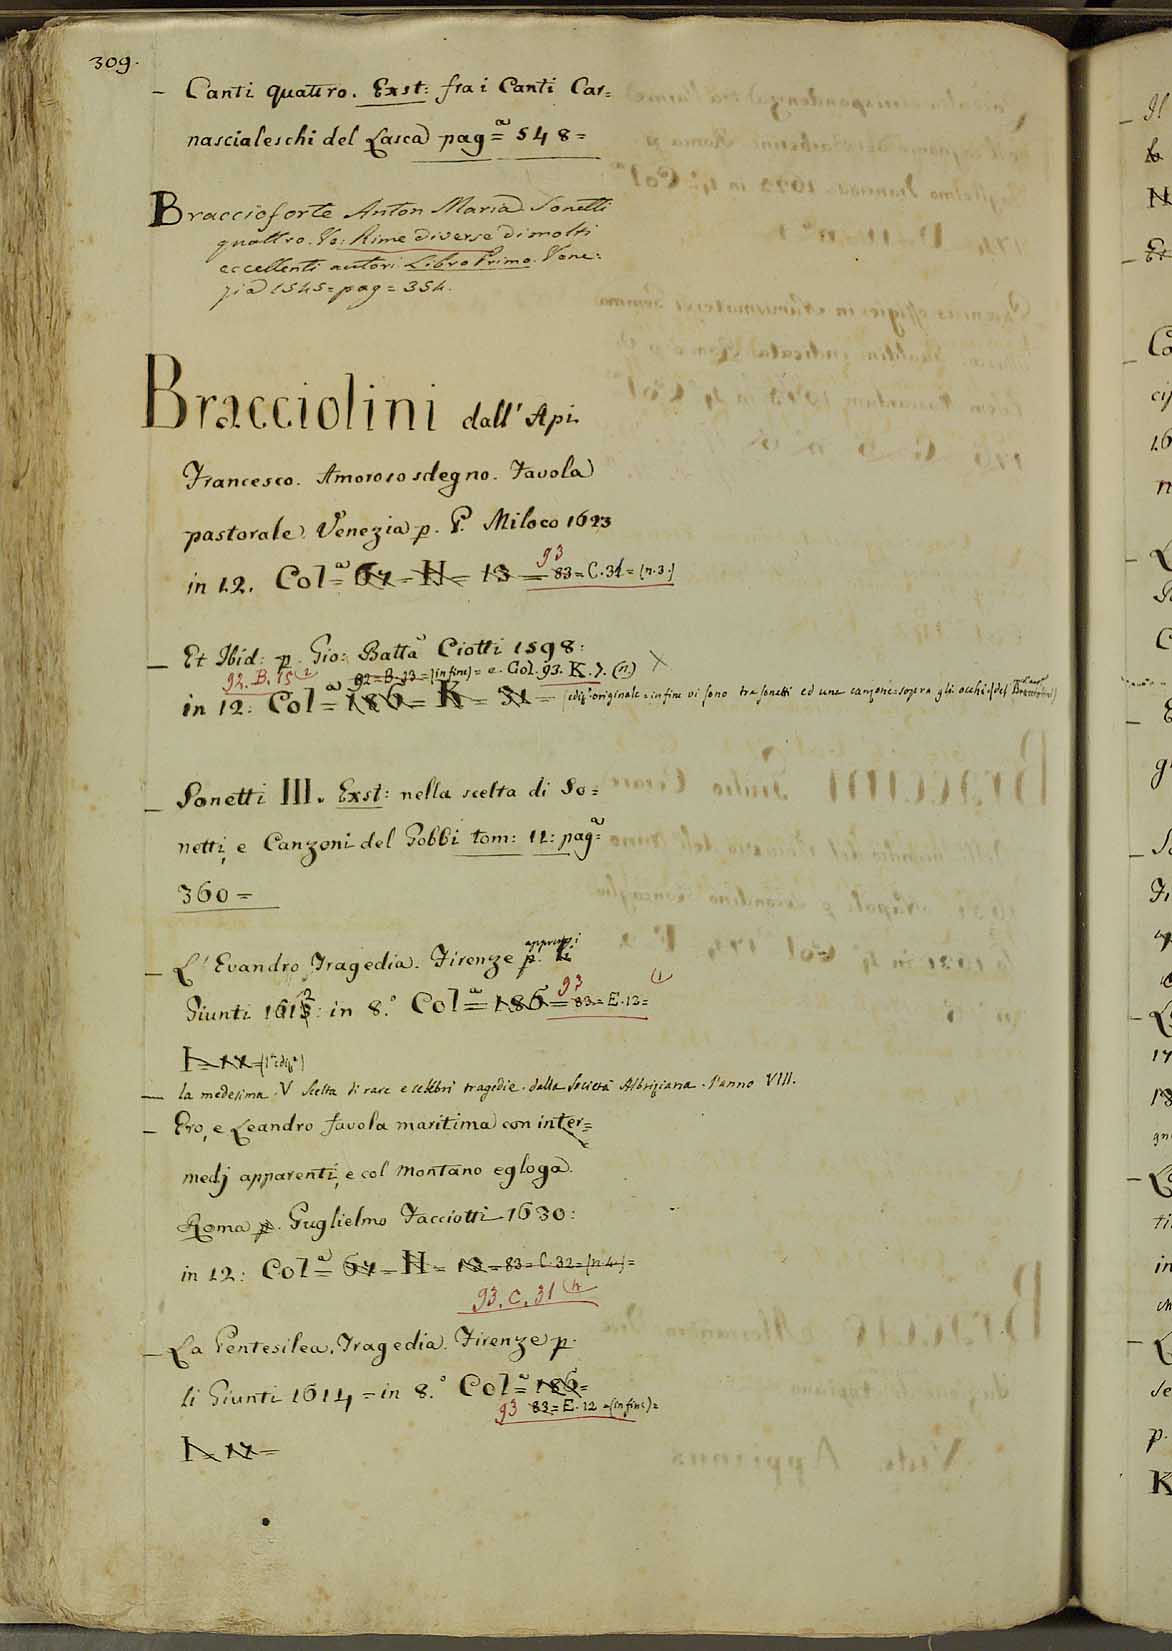 309.
– Canti quattro. Exst: fra i Canti Car=
nascialeschi del Lasca pag.ª 548=
Braccioforte Anton Maria Sonetti
quattro. Vo: Rime diverse di molti
eccellenti autori Libro Primo. Vene:
zia 1545= pag= 354.
Bracciolini dall' Api
Francesco. Amoroso sdegno. Favola
pastorale. Venezia p. P. Miloco 1623
93
in 12. Col=ª 67 = H = 13 = 83=C.31= (n.3.)
– Et Ibid: p. Gio: Batta Ciotti 1598:
92.B.15 92=B.93=(in fine)= e. Col. 93. K. 7. (n)
in 12: Col=ª 186= K= 31= (ediz. originale = in fine vi sono tra sonetti ed una canzone sopra gli occhi (del Bracciolini)
– Sonetti III. Exst: nella scelta di So=
netti, e Canzoni del Gobbi tom: 11: pagª=
360=
appresso i
– L' Evandro Tragedia. Firenze p. li
93 (1
Giunti 1612: in 8.º Col=ª 186= 83=E.12=
I= 17=(1ª ediz.ª)
– la medesima. V Scelta di rare e celebri tragedie. dalla Società Albriziana. l'anno VIII.
– Ero, e Leandro favola maritima con inter=
medj apparenti, e col Montano egloga.
Roma p. Guglielmo Facciotti 1630:
in 12: Col=ª 67= H= 13= 83= C.32=(n.4.)=
93. C. 31 (4
– La Pentesilea. Tragedia. Firenze p.
li Giunti 1614= in 8.º Col=ª 186=
93 83=E.12=(in fine)=
I= 17=